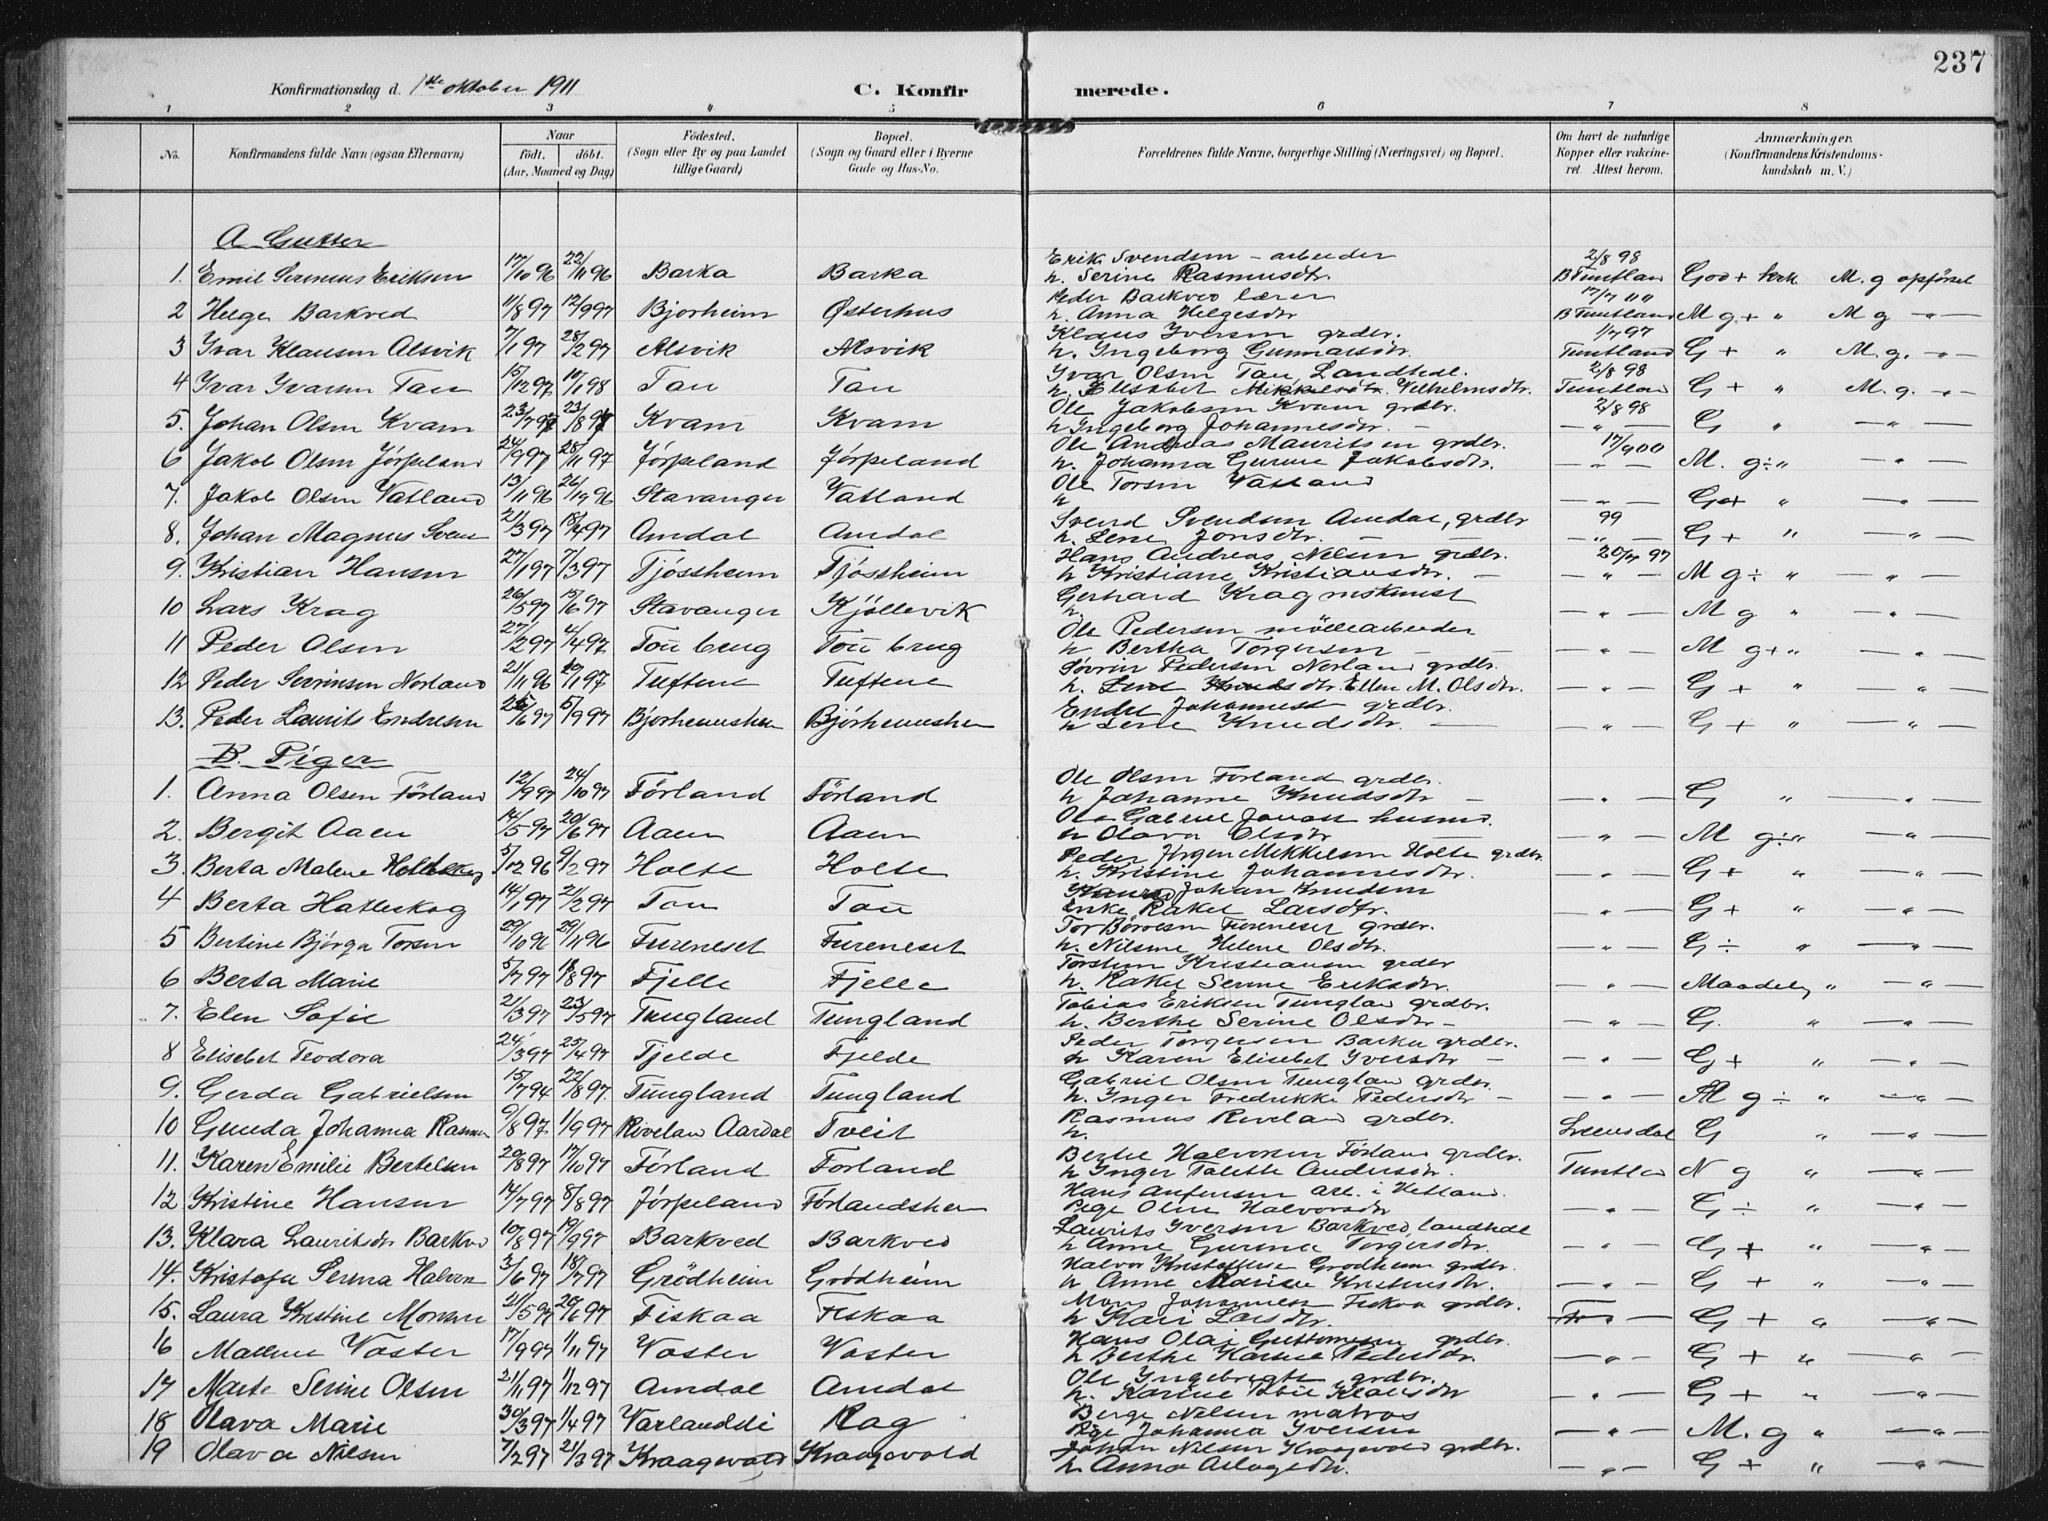 237
Konfirmationsdag d. 1ste oktober 1911 C. Konfirmerede.
1 2 3 4 5 6 7 8
No. Konfirmandens fulde Navn (ogsaa Efternavn) Naar født. døbt. (Aar, Maaned og Dag) Fødested. (Sogn eller By og paa Landet tillige Gaard) Bopæl. (Sogn og Gaard eller i Byerne Gade og Hus-No. Forældrenes fulde Navne, borgerlige Stilling (Næringsvei) og Bopæl. Om havt de naturlige Kopper eller vakcineret. Attest herom. Anmærkninger. (Konfirmandens Kristendomskundskab m. V.)
A Gutter
Erik Svendsen - arbeider 2/8 98
1. Emil Serenius Eriksen 17/10 96 22/11 96 Barka Barka h. Serine Rasmusdtr B Tuntland God + kirk M. g opførsel
Peder Barkved lærer
2 Helge Barkved 11/8 97 12/9 97 Bjorheim Østerhus h. Anna Helgesdtr B Tuntland M g + " M g - " -
Klaus Iversen grdbr. 1/7 97
3 Ivar Klausen Alsvik 7/1 97 28/2 97 Alsvik Alsvik h. Ingeborg Gunnarsdtr. Tuntland G + " M. g. - " -
Ivar Olsen Tau Landhdl. 2/8 98
4 Ivar Ivarsen Tau 15/12 97 10/1 98 Tau Tau h. Elisabet Mikkelsdtr. Vilhelmsdtr. Tuntland G + " M. g. - " -
Ole Jakobsen Kvam grdbr. 2/8 98
5. Johan Olsen Kvam 23/7 97 23/8 97 Kvam Kvam h Ingeborg Johannesdtr. - - " - G " - " -
Ole Andreas Mauritsen grdbr. 17/9 00
6 Jakob Olsen Jørpeland 24/9 97 28/11 97 Jørpeland Jørpeland h. Johanna Gurine Jakobsdtr. - " - M. g ÷ " - " -
Ole Torsen Vatland
7. Jakob Olsen Vatland 13/11 96 Stavanger Vatland h - " - G + " - " -
Svend Svendsen Amdal, grdbr 99
8. Johan Magnus Sven 21/3 97 18/4 97 Amdal Amdal h. Lene Jonsdtr. - - - " - G + " - " -
Hans Andreas Nilsen grdbr. 20/7 97
9. Kristian Hansen 27/1 97 7/3 97 Tjøssheim Tjøssheim h Kristiane Kristiansdtr. - - " - M g ÷ " - " -
Gerhard Krag
10 Lars Krag 26/5 97 15/6 97 Stavanger Kjøllevik h. - " - M g " - " -
Ole Pedersen møllearbeider
11 Peder Olsen 27/2 97 4/4 97 Tou brug Tou brug h Bertha Torgersen - - - " - M g + " - " -
Sørrin Pedersen Norland grdbr.
12 Peder Serrinsen Norland 21/11 96 Tuftene Tuftene h. Lene Knudsdtr. Ellen M. Olsdtr. - " - G + " - " -
Endre Johannes grdbr.
13. Peder Laurits Endresen 5/9 97 Bjorheimshei Bjørheimshei h Lene Knudsdtr. - - " - G + " - " -
B. Piger
Ole Olsen Førland grdbr.
1. Anna Olsen Førland 12/9 97 24/10 97 Førland Førland h Johanne Knudsdtr - - " - G " - " -
Ola Gabriel Jonass husmd.
2. Bergit Aaen 14/5 97 20/6 97 Aaen Aaen h Olava Olsdtr - - " - M g ÷ " - " -
Peder Jørgen Mikkelsen Holte grdbr.
3. Berta Malene 5/12 96 9/2 97 Holte Holte h. Kristine Johannesdtr. - " - G + " - " -
Johan Knudsen
4 Berta Hatleskog 14/1 97 21/2 97 Tou Tou Enke Rakel Larsdtr. - " - G + " - " -
Tor Børresen Fureneset grdbr.
5 Bertine Bjørga Torsen 29/10 96 29/11 96 Fureneset Fureneset h. Nilsine Helene Olsdtr. - " - G ÷ " - " -
Torstein Kristiansen grdbr
6 Berta Marie 5/7 97 Fjelle Fjelle h. Rakel Serine Eriksdtr. - " - Maadelig " - " -
Tobias Eriksen Tunglan grdbr.
7. Elen Sofie 21/3 97 23/5 97 Tungland Tungland h. Berthe Serine Olsdtr - - " - G. " - " -
Peder Torgersen Barka grdbr.
8 Elisebet Teodora 24/3 97 25/4 97 Tjelde Fjelde h Karen Elisebet Iversdtr - - " - G + " - " -
Gabriel Olsen Tunglan grdbr.
9. Gerda Gabrielsen 15/7 94 22/8 97. Tungland Tungland h. Inger Fredrikke Pedersdtr - - " - M g ÷ " - " -
Rasmus Rivelan grdbr.
10 Gunda Johanna Rasmu 9/8 97. 1/9 97 Rivelan Aardal Tveit h. G " - " -
Bertel Halvorsen Førland grdbr.
11. Karen Emilie Bertelsen 20/8 97 17/10 97 Førland Forland h Inger Talette Andersdtr. Tuntlan N g " - " -
Hans arb. i Vetland.
12 Kristine Hansen 14/7 97 8/8 97 Jørpeland Førlandshei Pige Oline Halvorsdtr - " - G ÷ " - " -
Laurits Iversen Barkved, landhdl
13. Klara Lauritsdtr Barkved 10/8 97 19/9 97 Barkved Barkved h Anne Gurina Torgersdtr. - " - G + " - " -
Halvor Kristoffers Grødheim grdbr.
14. Kristofa Serina Halvor 3/6 97 18/7 97 Grødheim Grødheim h Anne Marie - " - G + " - " -
Mons Johannesen Fiskaa grdbr.
15. Laura Kristine Monsen 21/5 97 Fiskaa Fiskaa h Kari Larsdtr. - " - G + " - " -
Hans Olaj Guttormsen grdbr.
16 Malene Vaster 17/9 97 1/11 97 Vaster Vaster h Berthe Karine Pedersdtr. - " - G + " - " -
Ole Ingebrigts grdbr.
17 Marte Serine Olsen 21/11 97 1/12 97 Amdal Amdal h. Karine Klausdtr - " - G + " - " -
Berge Nilsen matros
18 Olava Marie 30/3 97 1/4 97 Varlanddi Rag Pige Johanna Iversen - " - M. g " - " -
Johan Nilsen Kraagevold grdbr.
19 Olava Nilsen 7/2 97 21/3 97 Kraagevold Kraagevold h Anna Aslagsdtr. - " - G + " - " -